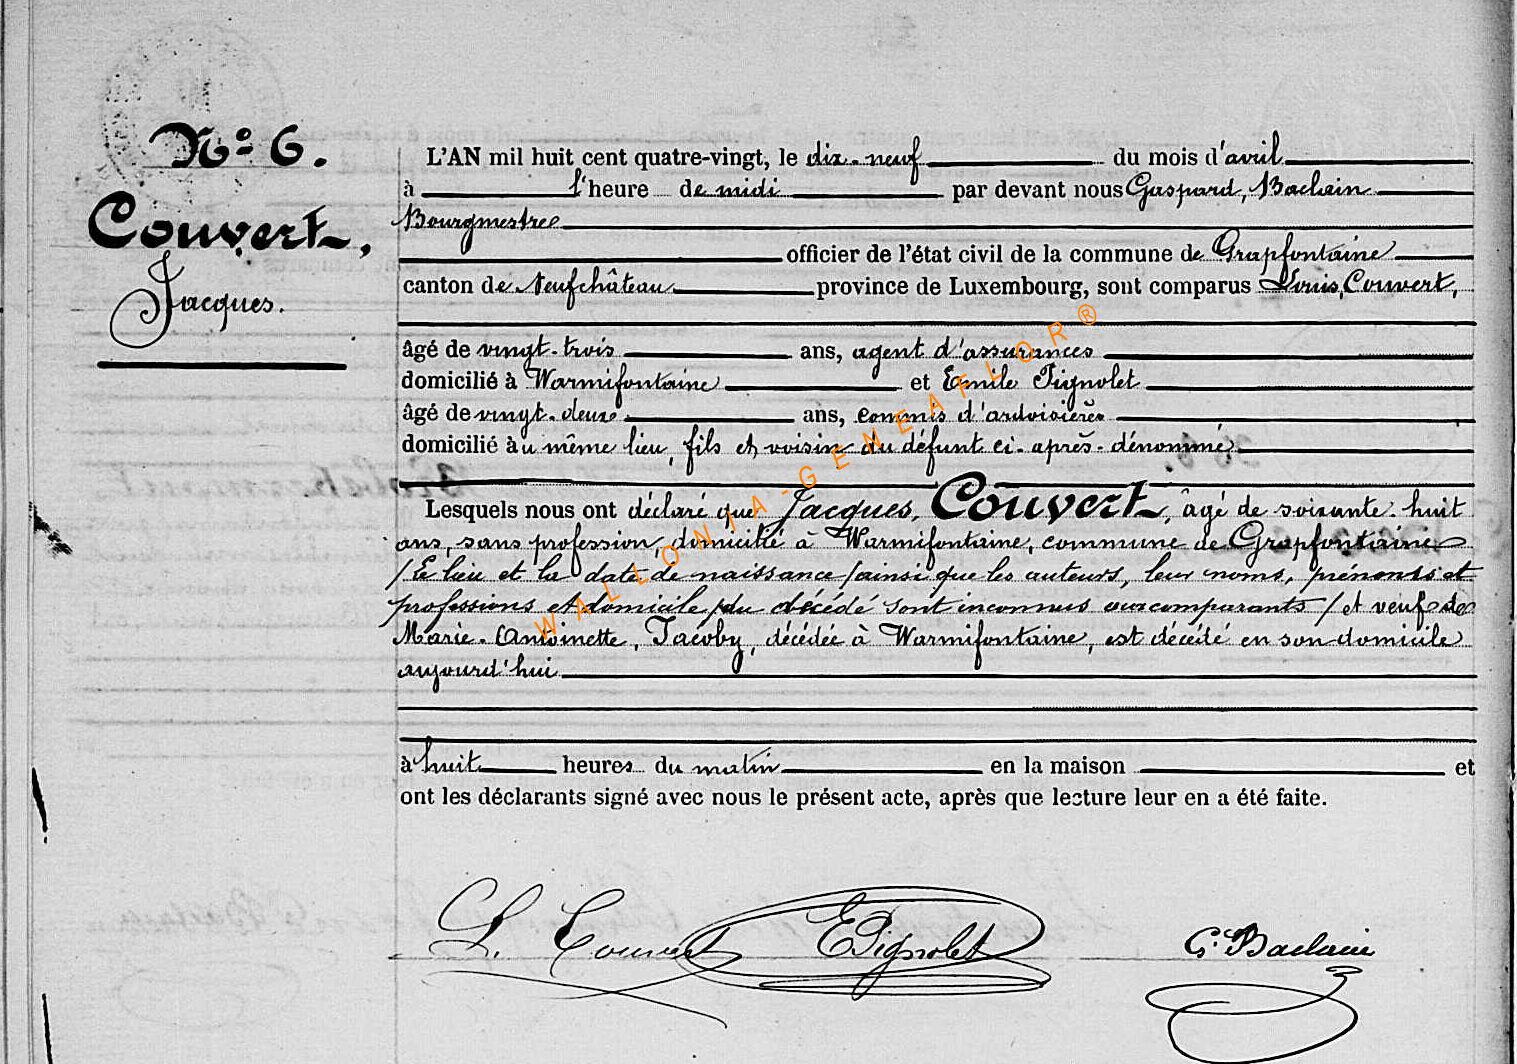 No 6.
Couvert,
Jacques.
L'AN mil huit cent quatre-vingt, le dix-neuf du mois d'avril
à l'heure de midi par devant nous Gaspard, Baclain
Bourgmestre
officier de l'état civil de la commune de Grapfontaine
canton de Neufchâteau province de Luxembourg, sont comparus Louis, Couvert,
âgé de vingt-trois ans, agent d'assurances
domicilié à Warmifontaine et Emile Pignolet
âgé de vingt-deux ans, commis d'ardoisières
domicilié au même lieu, fils et voisin du défunt ci-après-dénommé
Lesquels nous ont déclaré que Jacques, Couvert, âgé de soixante-huit
ans, sans profession, domicilié à Warmifontaine, commune de Grapfontaine
/ le lieu et la date de naissance / ainsi que les auteurs, leur noms, prénoms et
professions et domicile / du décédé sont inconnus aux comparants / et veuf de
Marie-Antoinette, Jacoby, décédée à Warmifontaine, est décédé en son domicile
aujourd'hui
à huit heures du matin en la maison et
ont les déclarants signé avec nous le présent acte, après que lecture leur en a été faite.
L. Couvert EPignolet G. Baclain
WALLONIA-GENEAFLOR®